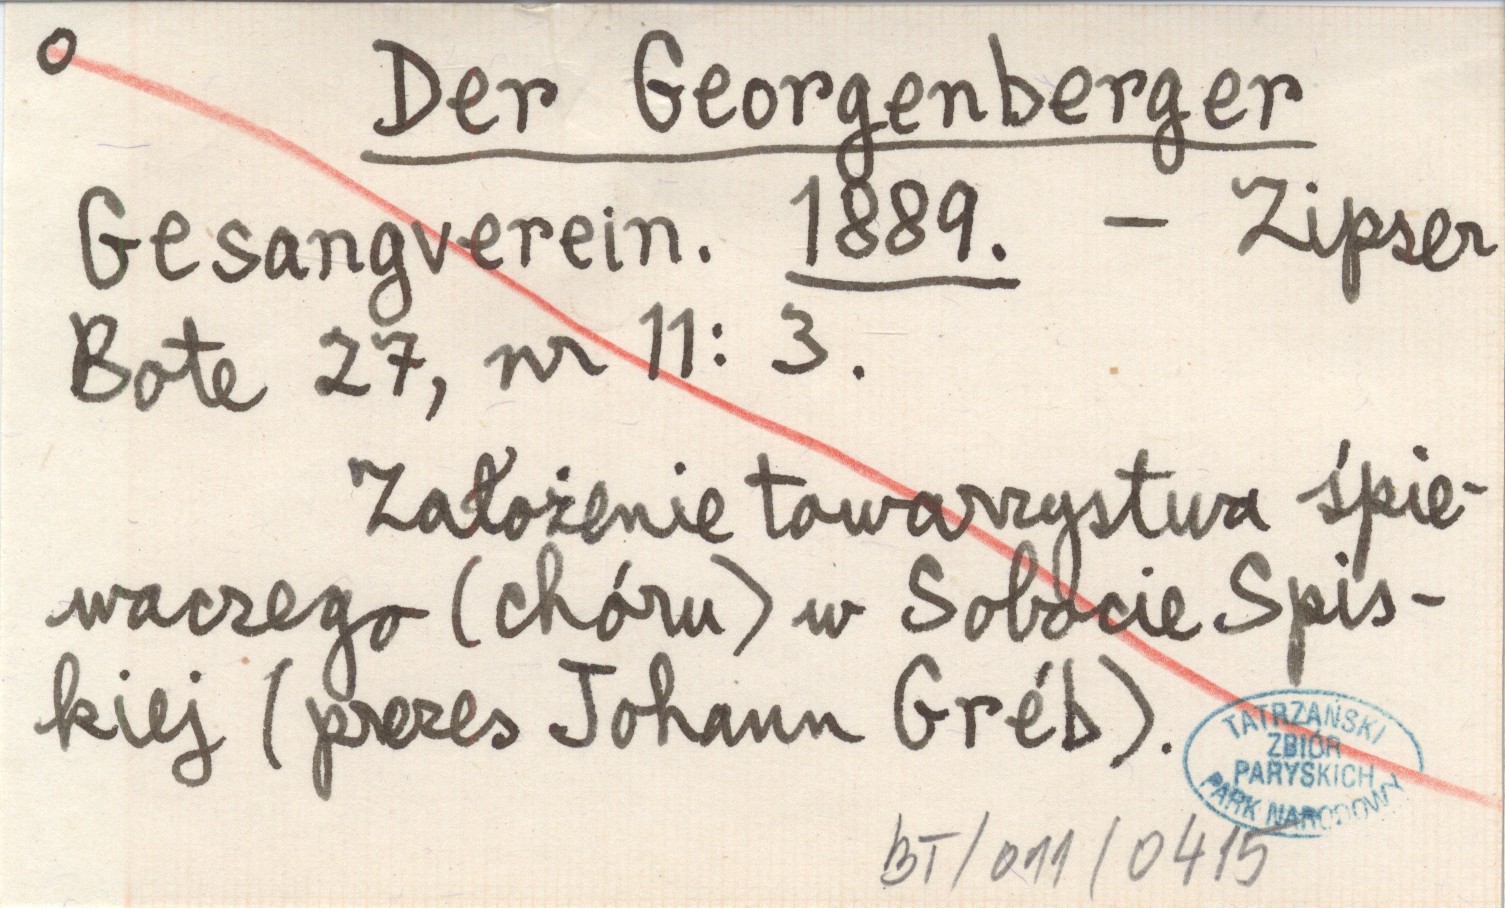 Der Georgenberger
Gesangverein. 1889. – Zipser
Bote 27, nr 11: 3.
Założenie towarzystwa śpie-
waczego (chóru) w Sobocie Spis-
kiej (prezes Johann Gréb).
TATRZAŃSKI
ZBIÓR
PARYSKICH
PARK NARODOWY
BT/011/0415